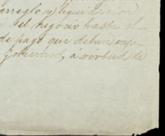 arreglo y liquidacion
del negocio hasta el
de pago que deben
Gobierno, á virtud de